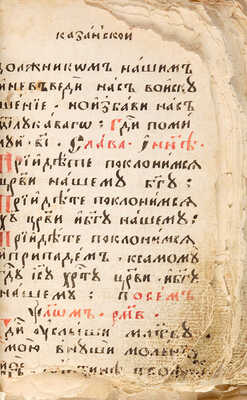 казанской
должникѡмъ нашимъ
и невъведи насъ воискꙋ
шенїе · но избави насъ
ѿ лꙋкаваго : гди поми
лꙋи · в҃і · слава · інн҃ѣ ·
прїидѣте поклонимсѧ
цр҃ви нашемꙋ бг҃ꙋ :
прїидѣте поклонимсѧ
хꙋ цр҃ви ибг҃ꙋ нашемꙋ :
прїидѣте поклонимсѧ
иприпадемъ · ксамомꙋ
гдꙋ іс҃ꙋ хрт҃ꙋ цр҃ви · ибг҃ꙋ
нашемꙋ : посемъ
ѱаломъ · рм҃в ·
гди оуслыши млтвꙋ
мою внꙋши молен